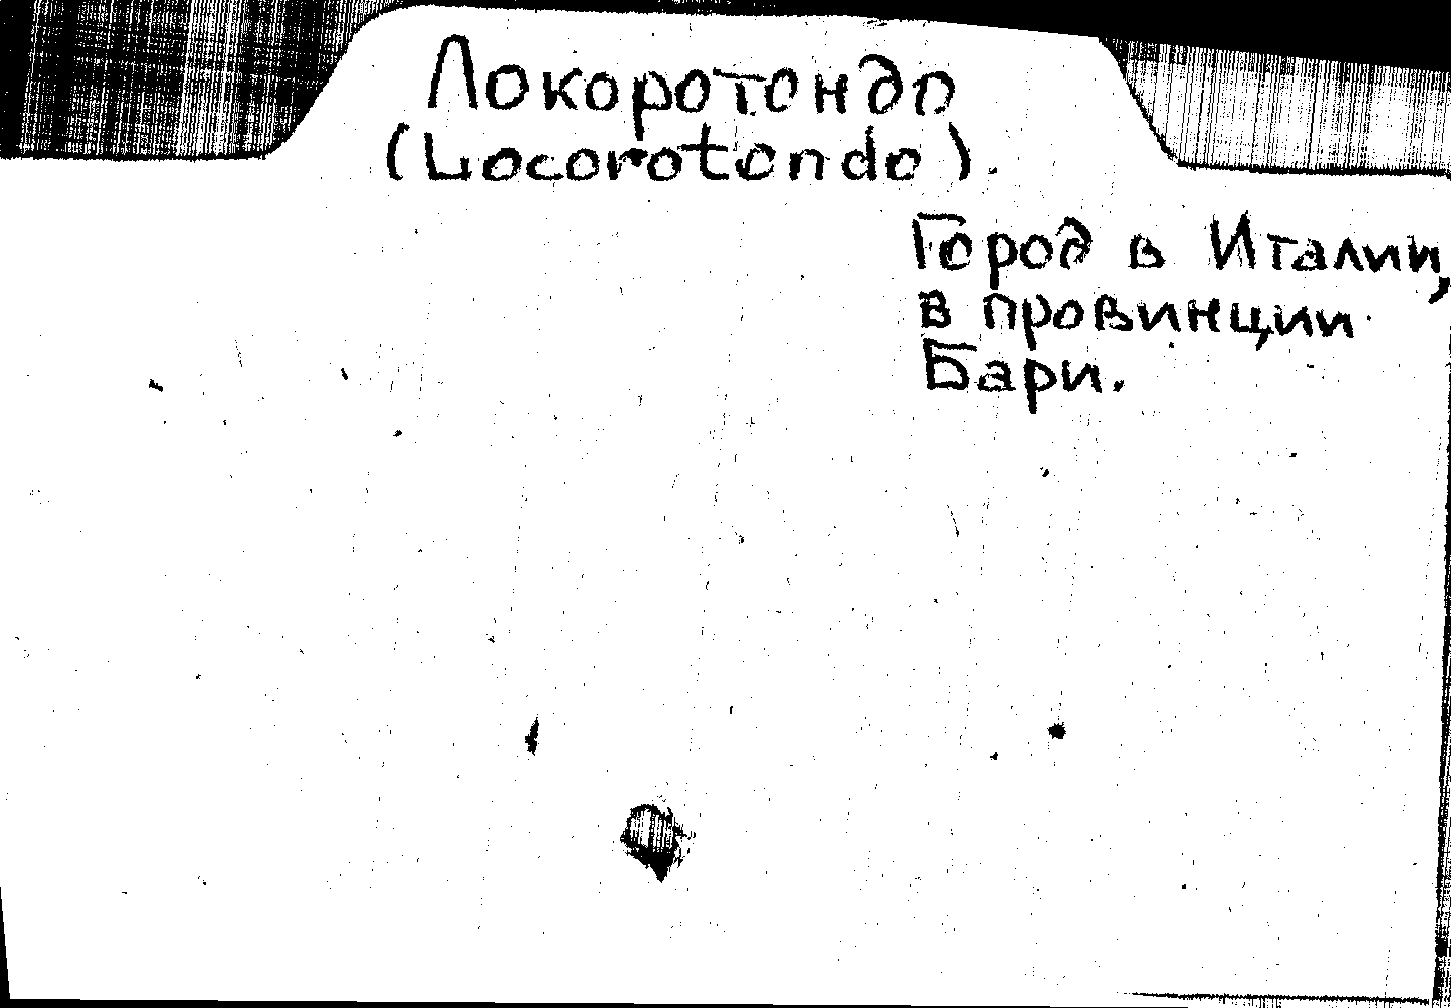 Локоротондо
(Locorotondo).
Город в Италии,
в провинции
Бари.